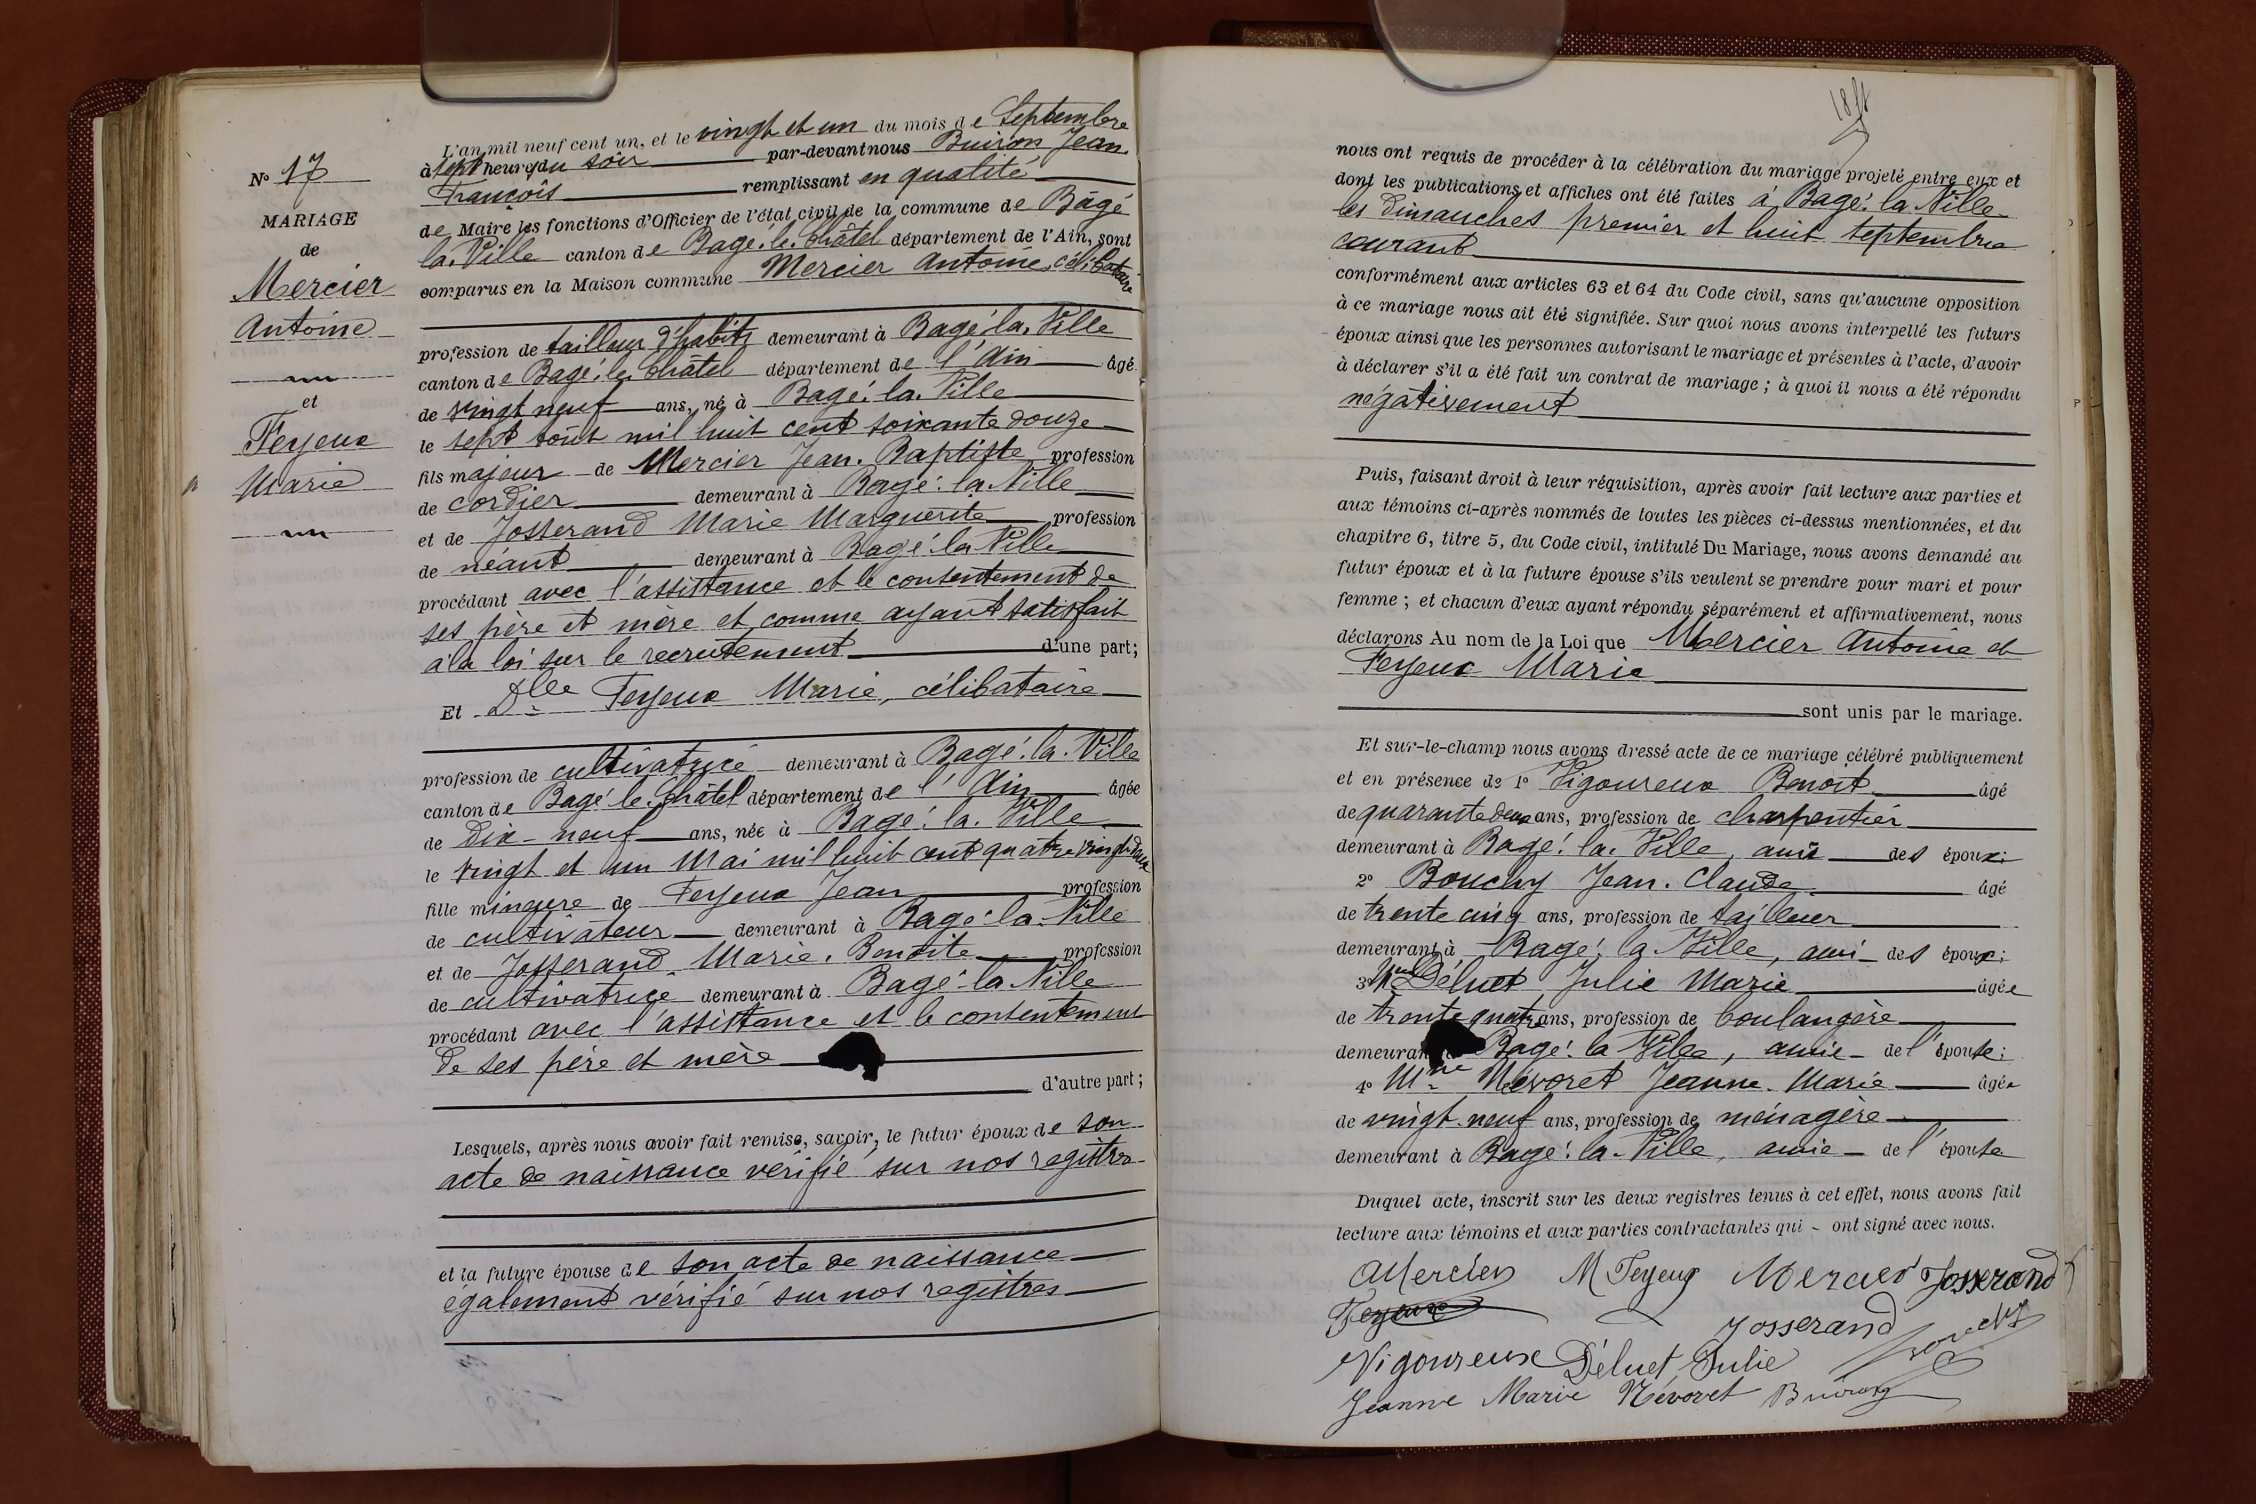 N° 17
MARIAGE
de
Mercier
Antoine
et
Feyeux
Marie
L'an mil neuf cent un, et le vingt et un du mois de Septembre
à sept heures du soir par-devant nous Buiron Jean
François remplissant en qualité
de Maire les fonctions d'Officier de l'état civil de la commune de Bâgé
la Ville canton de Bagé-le-Châtel département de l'Ain, sont
comparus en la Maison commune Mercier Antoine, célibataire
profession de tailleur d'habits demeurant à Bagé-la-Ville
canton de Bagé-le-Châtel département de l'Ain âgé
de vingt neuf ans, né à Bagé-la-Ville
le sept août mil huit cent soixante douze
fils majeur de Mercier Jean-Baptiste profession
de cordier demeurant à Bagé-la-Ville
et de Josserand Marie Marguerite profession
de néant demeurant à Bagé-la-Ville
procédant avec l'assistance et le consentement de
ses père et mère et comme ayant satisfait
à la loi sur le recrutement d'une part;
Et Dlle Feyeux Marie, célibataire
profession de cultivatrice demeurant à Bagé-la-Ville
canton de Bagé-le-Châtel département de l'Ain âgée
de dix-neuf ans, née à Bagé-la-Ville
le vingt et un Mai mil huit cent quatre vingt deux
fille mineure de Feyeux Jean profession
de cultivateur demeurant à Bagé-la-Ville
et de Josserand Marie-Benoite profession
de cultivatrice demeurant à Bagé-la-Ville
procédant avec l'assistance et le consentement
de ses père et mère
d'autre part;
Lesquels, après nous avoir fait remise, savoir, le futur époux de son
acte de naissance vérifié sur nos registres
et la future épouse de son acte de naissance
également vérifié sur nos registres
nous ont requis de procéder à la célébration du mariage projeté entre eux et
dont les publications et affiches ont été faites à Bagé-la-Ville
les dimanches premier et huit septembre
courant
conformément aux articles 63 et 64 du Code civil, sans qu'aucune opposition
à ce mariage nous ait été signifiée. Sur quoi nous avons interpellé les futurs
époux ainsi que les personnes autorisant le mariage et présentes à l'acte, d'avoir
à déclarer s'il a été fait un contrat de mariage; à quoi il nous a été répondu
négativement
Puis, faisant droit à leur réquisition, après avoir fait lecture aux parties et
aux témoins ci-après nommés de toutes les pièces ci-dessus mentionnées, et du
chapitre 6, titre 5, du Code civil, intitulé Du Mariage, nous avons demandé au
futur époux et à la future épouse s'ils veulent se prendre pour mari et pour
femme; et chacun d'eux ayant répondu séparément et affirmativement, nous
déclarons Au nom de la Loi que Mercier Antoine et
Feyeux Marie
sont unis par le mariage.
Et sur-le-champ nous avons dressé acte de ce mariage célébré publiquement
et en présence de 1° Vigoureux Benoit âgé
de quarante deux ans, profession de charpentier
demeurant à Bagé-la-Ville, ami des époux;
2° Bouchy Jean-Claude âgé
de trente cinq ans, profession de tailleur
demeurant à Bagé-la-Ville, ami des époux;
3° Mme Déluet Julie Marie âgée
de trente quatre ans, profession de boulangère
demeurant Bagé-la-Ville, amie de l'épouse;
4° Mme Névoret Jeanne-Marie âgée
de vingt-neuf ans, profession de ménagère
demeurant à Bagé-la-Ville, amie de l'épouse
Duquel acte, inscrit sur les deux registres tenus à cet effet, nous avons fait
lecture aux témoins et aux parties contractantes qui - ont signé avec nous.
AMercier M Feyeux Mercier Josserand
Feyeux Josserand
Vigoureux Déluet Julie Bouchy
Jeanne Marie Névoret Buiron